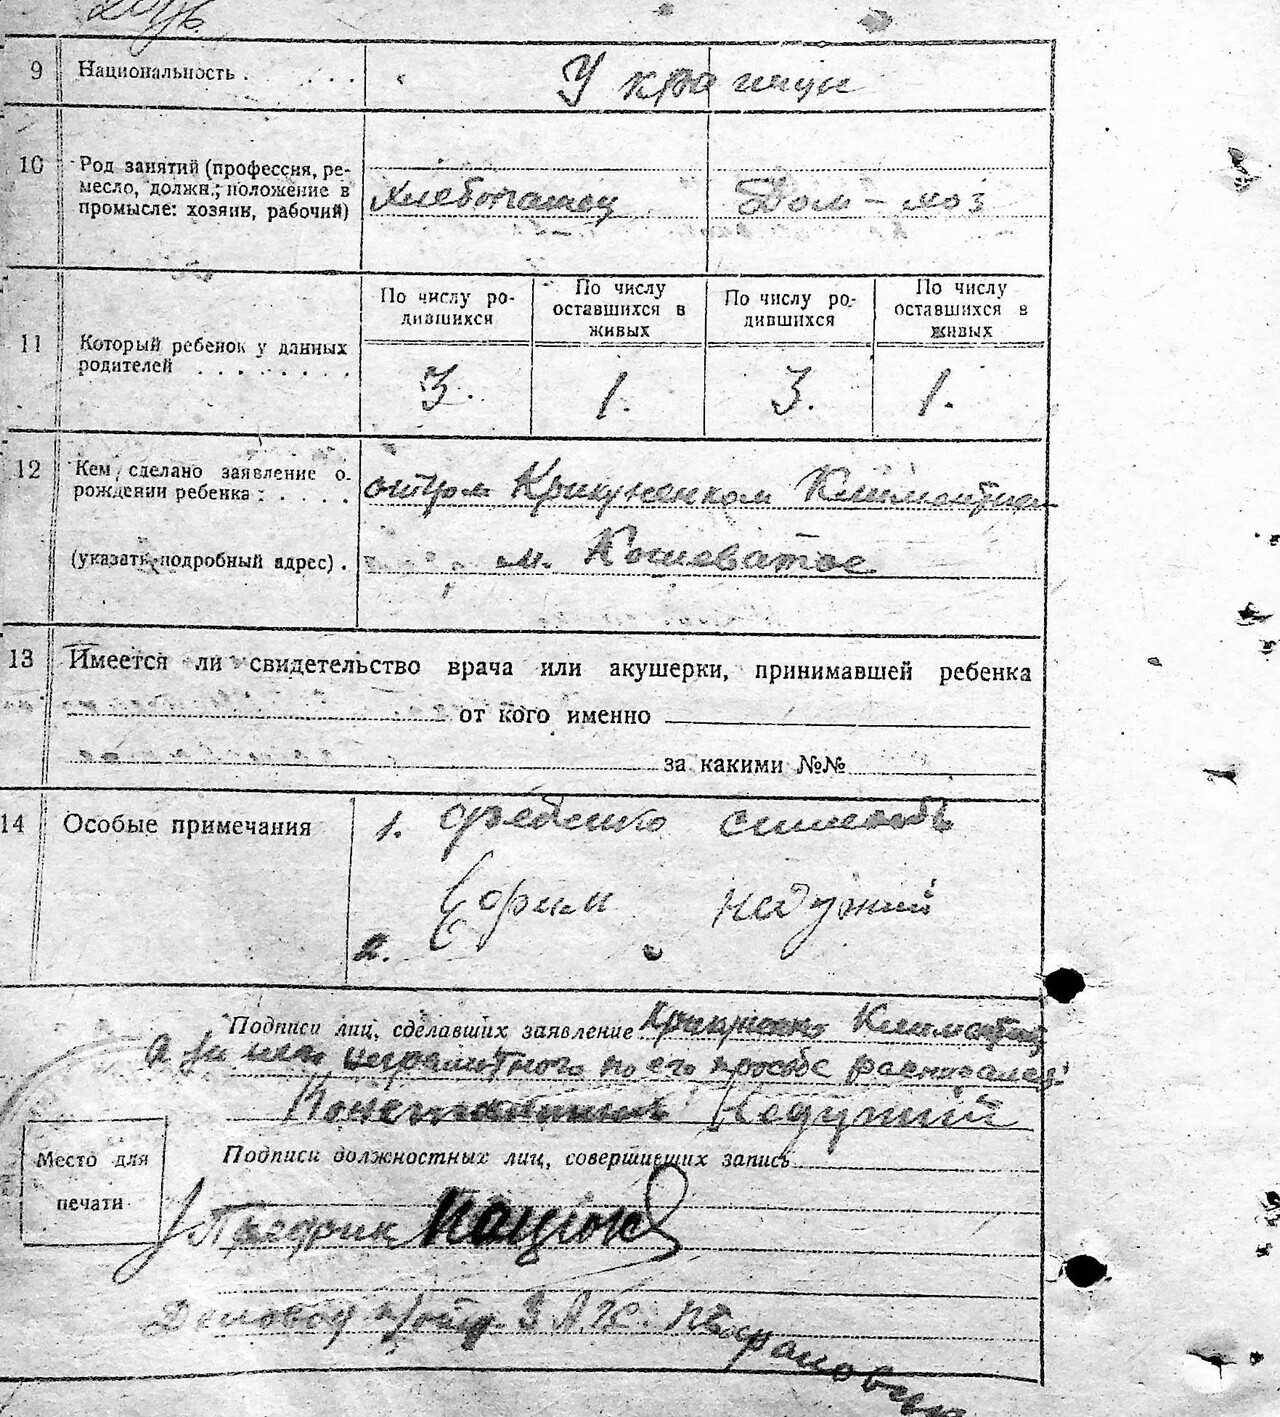 9 Национальность . . . . . Украинцы
10 Род занятий (профессия, ре-
месло, должн.; положение в
промысле: хозяин, рабочий) Хлебопашец Дом-хоз
По числу ро-
дившихся
По числу
оставшихся в
живых
По числу ро-
дившихся
По числу
оставшихся в
живых
11 Который ребенок у данных
родителей . . . . . . . .
3. 1. 3. 1.
12 Кем сделано заявление о
рождении ребенка: . . . . отцом Крикуненком Климентием
(указать подробный адрес) . м. Кошеватое
13 Имеется ли свидетельство врача или акушерки, принимавшей ребенка
от кого именно
за какими №№
14 Особые примечания
1.
2.
Подписи лиц, сделавших заявление Климентий
а за него неграмотного по его просьбе расписался:
Константин Недужий
Место для
печати
Подписи должностных лиц, совершивших запись